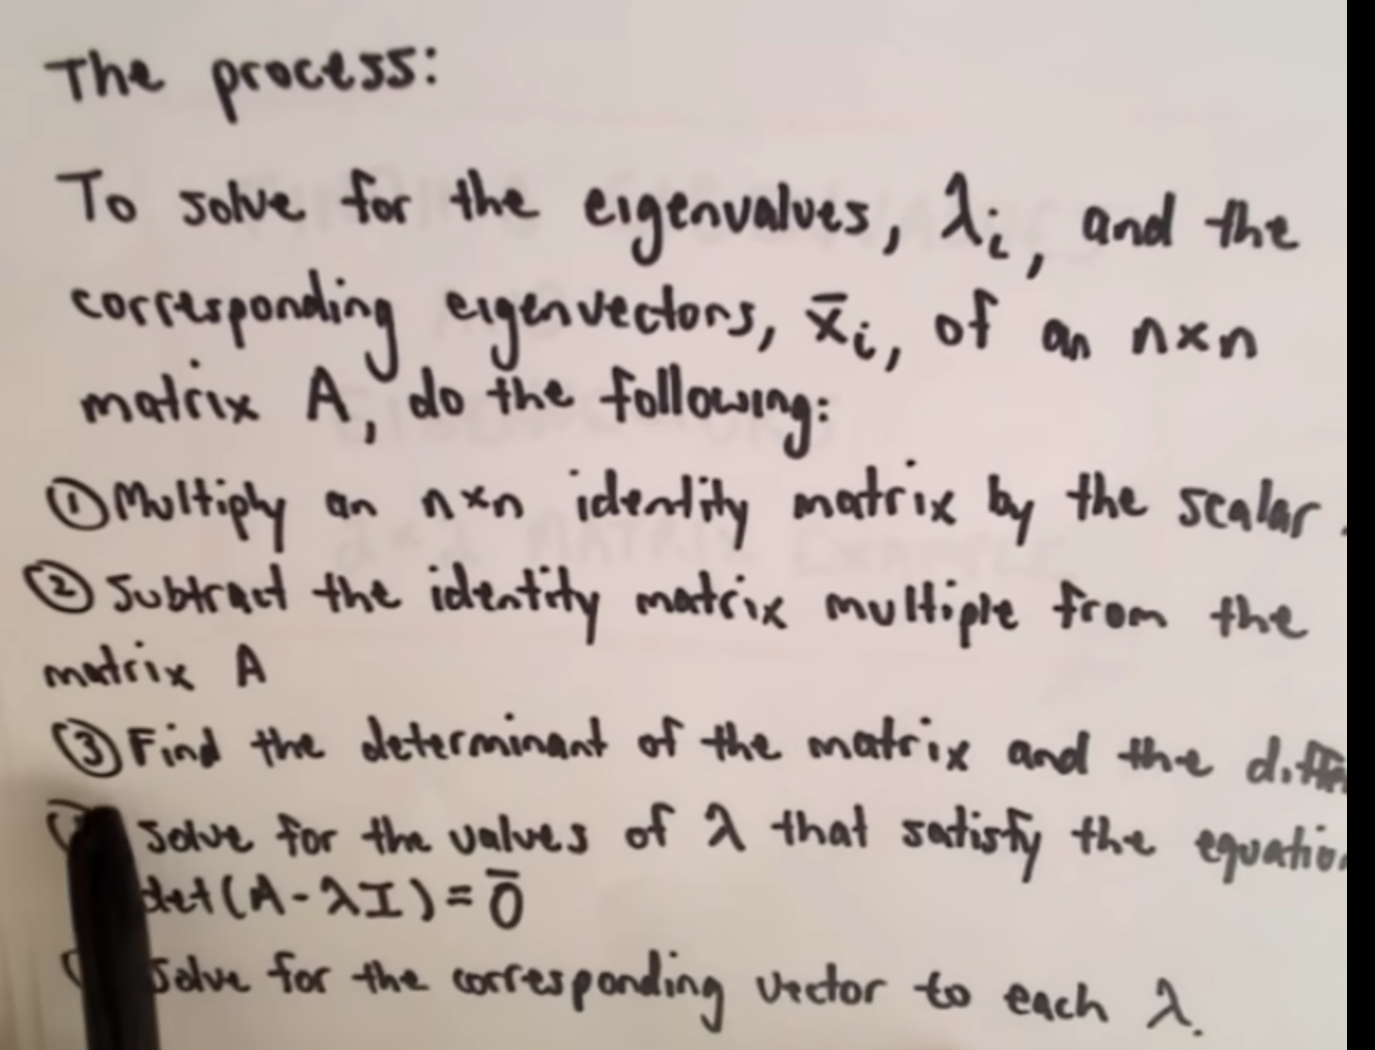 The process:
To solve for the eigenvalues, λᵢ, and the
corresponding eigenvectors, x̄ᵢ, of an n×n
matrix A, do the following:
① Multiply an n×n identity matrix by the scalar
② Subtract the identity matrix multiple from the
matrix A
③ Find the determinant of the matrix and the
solve for the values of λ that satisfy the
det(A-λI)=0̄
solve for the corresponding vector to each λ.